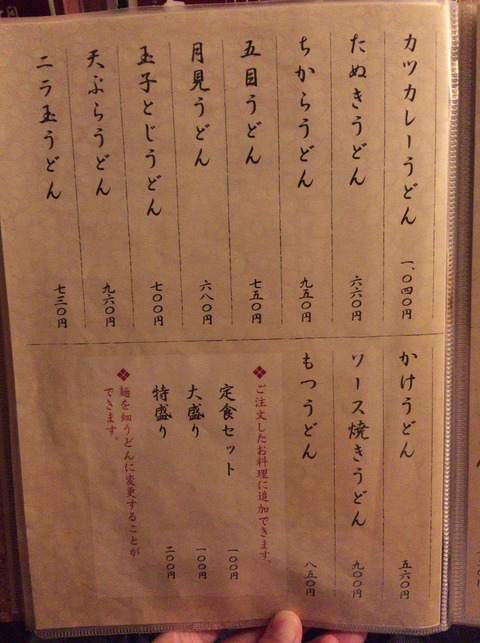 カツカレーうどん 一、〇四〇円
たぬきうどん 六六〇円
ちからうどん 九五〇円
五目うどん 七五〇円
月見うどん 六八〇円
玉子とじうどん 七〇〇円
天ぷらうどん 九六〇円
ニラ玉うどん 七三〇円
かけうどん 五六〇円
ソース焼きうどん 九〇〇円
もつうどん 八五〇円
❖ご注文したお料理に追加できます。
定食セット 一〇〇円
大盛り 一〇〇円
特盛り 二〇〇円
❖麺を細うどんに変更することが
できます。